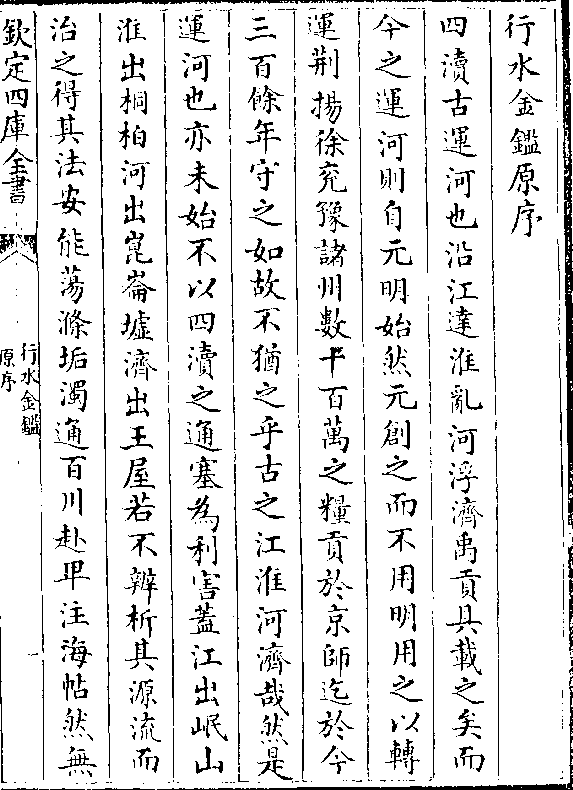 行水金鑑原序
四瀆古運河也沿江達淮亂河浮濟禹貢具載之矣而
今之運河則自元明始然元創之而不用明用之以轉
運荆揚徐兖豫諸州數千百萬之糧貢於京師迄於今
三百餘年守之如故不猶之乎古之江淮河濟哉然是
運河也亦未始不以四瀆之通塞為利害蓋江出岷山
淮出桐柏河出崑崙墟濟出王屋若不辨析其源流而
治之得其法安能蕩滌垢濁通百川赴卑注海帖然無
欽定四庫全書
行水金鑑
原序
一